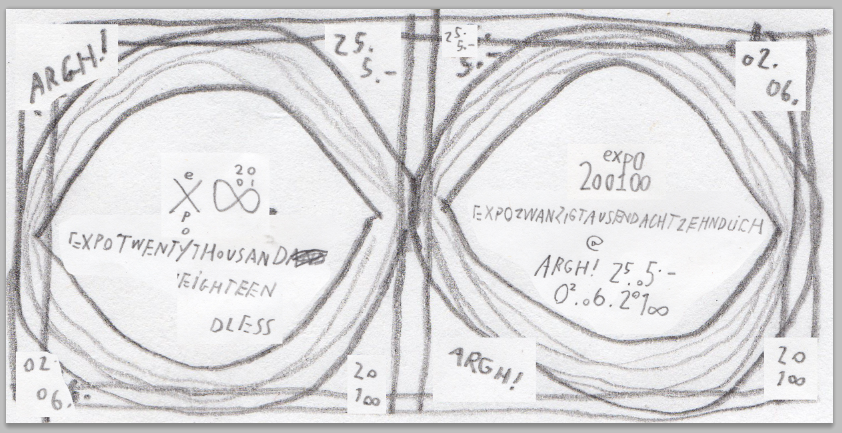 ARGH!
25.
5.-
25.
5.-
5.-
02.
06.
e
X
p
o
20
01
∞
EXPOTWENTYTHOUSAND
EIGHTEEN
DLESS
expo
200100
EXPOZWANZIGTAUSENDACHTZEHNDLICH
@
ARGH! 25.05.-
02.06.20100
02
06.
20
100
ARGH!
20
100